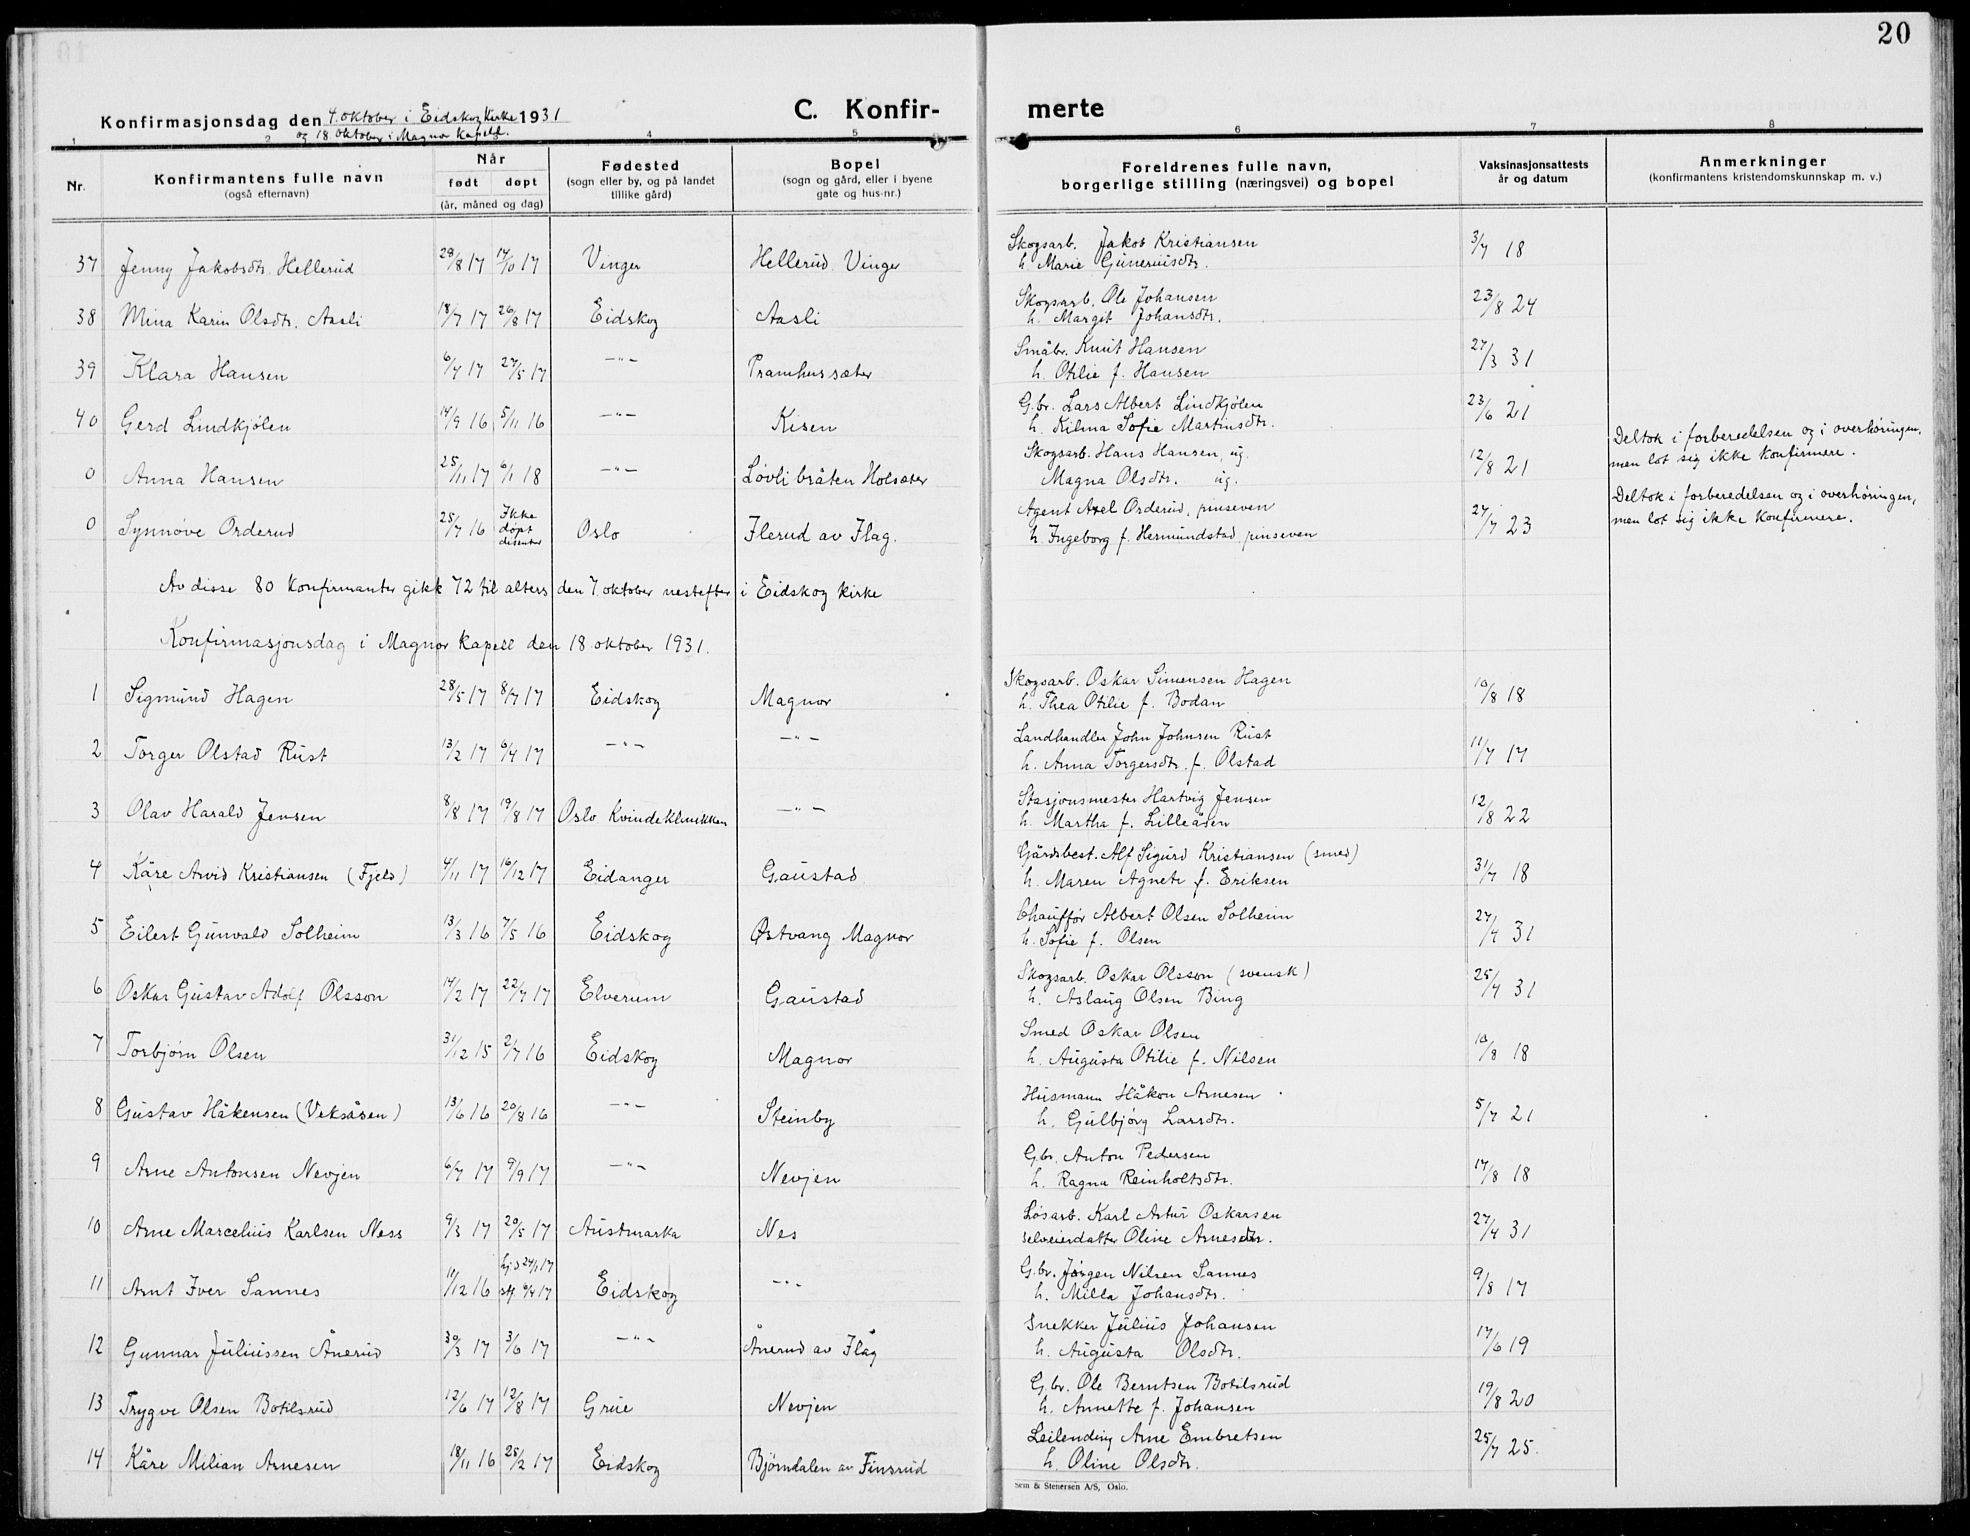 20
Konfirmasjonsdag den 4. oktober i Eidskog Kirke 1931
og 18 oktober i Magnor Kapell.
C. Konfir- merte
1 2 4 5 6 7 8
Nr. Konfirmantens fulle navn (også efternavn) Når født døpt (år, måned og dag) Fødested (sogn eller by, og på landet tillike gård) Bopel (sogn og gård, eller i byene gate og hus-nr.) Foreldrenes fulle navn, borgerlige stilling (næringsvei) og bopel Vaksinasjonsattests år og datum Anmerkninger (konfirmantens kristendomskunnskap m. v.)
37 Jenny Jakobsdtr. Hellerud 29/8 17 14/10 17 Vinger Hellerud Vinger Skogsarb. Jakob Kristiansen 3/7 18
h. Marie Guneriusdtr.
38 Mina Karin Olsdtr. Aasli 18/7 17 26/8 17 Eidskog Aasli Skogsarb. Ole Johansen 23/8 24
h. Margit Johansdtr.
39 Klara Hansen 6/4 17 27/5 17 —"— Pramhussæter Småbr. Knut Hansen 27/3 31
h. Otilie f. Hansen
40 Gerd Lindkjølen 14/9 16 5/11 16 —"— Kisen G.br. Lars Albert Lindkjølen 23/6 21
h. Kilma Sofie Martinsdtr.
0 Anna Hansen 25/11 17 6/1 18 —"— Løvli bråten Holsæter Skogsarb. Hans Hansen, ug. 12/8 21 Deltok i forberedelsen og i overhøringen,
Magna Olsdtr. ug. men lot sig ikke konfirmere.
0 Synnøve Orderud 25/7 16 Ikke døpt disenter Oslo Flerud av Flag. Agent Axel Orderud, pinseven 27/7 23 Deltok i forberedelsen og i overhøringen,
h. Ingeborg f. Hermundstad pinseven men lot sig ikke konfirmere.
Av disse 80 konfirmanter gikk 72 til alters den 7. oktober nestefter i Eidskog kirke
Konfirmasjonsdag i Magnor kapell den 18 oktober 1931.
1 Sigmund Hagen 28/5 17 8/7 17 Eidskog Magnor Skogsarb. Oskar Simensen Hagen 10/8 18
h. Thea Otilie f. Bodan
2 Torger Olstad Rust 13/2 17 6/4 17 —"— —"— Landhandler John Johnsen Rust 11/7 17
h. Anna Torgersdtr. f. Olstad
3 Olav Harald Jensen 8/8 17 19/8 17 Oslo Kvindeklinikken —"— Stasjonsmester Hartvig Jensen 12/8 22
h. Martha f. Lilleåden
4 Kåre Arvid Kristiansen (Fjeld) 4/11 17 16/12 17 Eidanger Gaustad Gårdsbest. Alf Sigurd Kristiansen (smed) 31/7 18
h. Maren Agnete f. Eriksen
5 Eilert Gunvald Solheim 13/3 16 7/5 16 Eidskog Østvang Magnor Chauffør Albert Olsen Solheim 27/4 31
h. Sofie f. Olsen
6 Oskar Gustav Adolf Olsson 14/2 17 22/7 17 Elverum Gaustad Skogsarb. Oskar Olsson (svensk) 25/4 31
h. Aslaug Olsen Bing
7 Torbjørn Olsen 31/12 15 2/7 16 Eidskog Magnor Smed Oskar Olsen 10/8 18
h. Augusta Otilie f. Nilsen
8 Gustav Håkensen (Veksåsen) 13/6 16 20/8 16 —"— Steinby Husmann Håkon Arnesen 5/7 21
h. Gulbjørg Larsdtr.
9 Arne Antonsen Nevjen 6/7 17 9/9 17 —"— Nevjen Gbr. Anton Pedersen 17/8 18
h. Ragna Reinholtsdtr.
10 Arne Marcelius Karlsen Ness 9/3 17 20/5 17 Austmarka Nes Løsarb. Karl Artur Oskarsen 27/4 31
selveierdatter Oline Arnesdtr.
11 Arnt Iver Sannes 11/12 16 Hj.d 24/1 17 stf 9/4 17 Eidskog —"— G.br. Jørgen Nilsen Sannes 9/8 17
h. Milla Johansdtr.
12 Gunnar Juliussen Ånerud 30/3 17 3/6 17 —"— Ånerud av Flåg Snekker Julius Johansen 17/6 19
h. Augusta Olsdtr.
13 Trygve Olsen Botilsrud 12/6 17 12/8 17 Grue Nevjen G.br. Ole Berntsen Botilsrud 19/8 20
h. Annette f. Johansen
14 Kåre Milian Arnesen 18/11 16 25/2 17 Eidskog Bjørndalen av Finsrud Leilending Arne Embretsen 25/7 25.
h. Oline Olsdtr.
Sem & Stenersen A/S, Oslo.